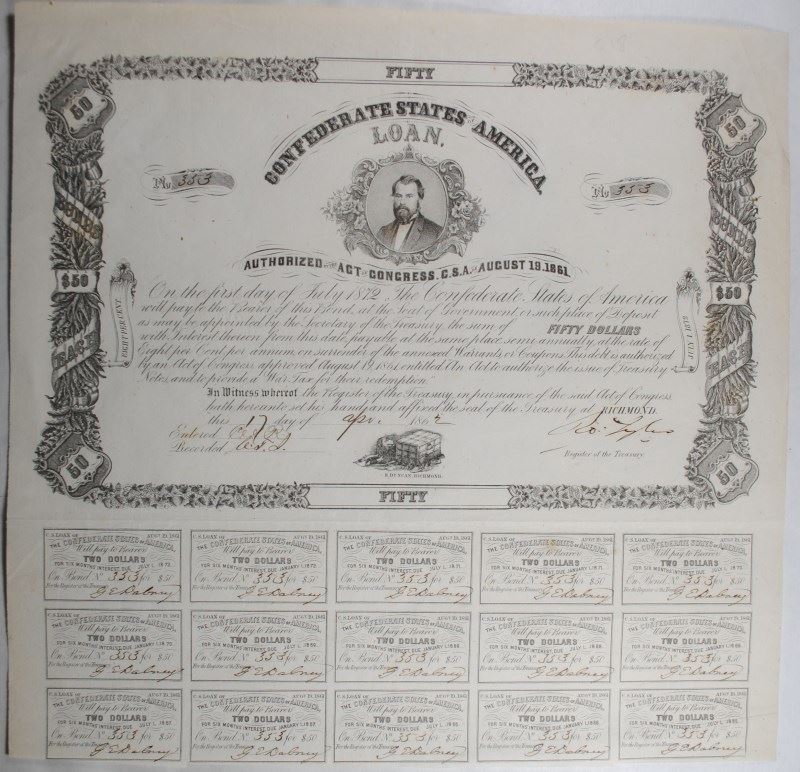 FIFTY
CONFEDERATE STATES OF AMERICA.
LOAN.
50
50
No 353
No 353
AUTHORIZED BY THE ACT OF CONGRESS. C.S.A. OF AUGUST 19. 1861.
BONDS
BONDS
$50
$50
EIGHT PER CENT
On the first day of July 1872, The Confederate States of America
will pay to the Bearer of this Bond, at the Seal of Government, or such place of Deposit
as may be appointed by the Secretary of the Treasury, the sum of FIFTY DOLLARS
with Interest thereon from this date, payable at the same place semi-annually, at the rate of
Eight per Cent per annum, on surrender of the annexed Warrants or Coupons. This debt is authorized
by an Act of Congress approved August 19, 1861, entitled An Act to authorize the issue of Treasury
Notes, and to provide a War Tax for their redemption.
In Witness whereof the Register of the Treasury, in pursuance of the said Act of Congress
hath hereunto set his hand, and affixed the Seal of the Treasury at RICHMOND.
this 17 day of Apr. 1862
Entered
Recorded
Ro. Tyler
Register of the Treasury
B. DUNCAN, RICHMOND.
50
50
FIFTY
C.S. LOAN OF AUGT 19, 1861
THE CONFEDERATE STATES OF AMERICA,
Will pay to Bearer
TWO DOLLARS
FOR SIX MONTHS INTEREST, DUE JULY 1, 1872.
On Bond No 353 for $50
For the Register of the Treasury
G E Dabney
C.S. LOAN OF AUGT 19, 1861
THE CONFEDERATE STATES OF AMERICA,
Will pay to Bearer
TWO DOLLARS
FOR SIX MONTHS INTEREST, DUE JANUARY 1, 1872.
On Bond No 353 for $50
For the Register of the Treasury
G E Dabney
C.S. LOAN OF AUGT 19, 1861
THE CONFEDERATE STATES OF AMERICA,
Will pay to Bearer
TWO DOLLARS
FOR SIX MONTHS INTEREST, DUE JULY 1, 1871.
On Bond No 353 for $50
For the Register of the Treasury
G E Dabney
C.S. LOAN OF AUGT 19, 1861
THE CONFEDERATE STATES OF AMERICA,
Will pay to Bearer
TWO DOLLARS
FOR SIX MONTHS INTEREST, DUE JANUARY 1, 1871.
On Bond No 353 for $50
For the Register of the Treasury
G E Dabney
C.S. LOAN OF AUGT 19, 1861
THE CONFEDERATE STATES OF AMERICA,
Will pay to Bearer
TWO DOLLARS
FOR SIX MONTHS INTEREST, DUE JULY 1, 1870.
On Bond No 353 for $50
For the Register of the Treasury
G E Dabney
C.S. LOAN OF AUGT 19, 1861
THE CONFEDERATE STATES OF AMERICA,
Will pay to Bearer
TWO DOLLARS
FOR SIX MONTHS INTEREST, DUE JANUARY 1, 1870.
On Bond No 353 for $50
For the Register of the Treasury
G E Dabney
C.S. LOAN OF AUGT 19, 1861
THE CONFEDERATE STATES OF AMERICA,
Will pay to Bearer
TWO DOLLARS
FOR SIX MONTHS INTEREST, DUE JULY 1, 1869.
On Bond No 353 for $50
For the Register of the Treasury
G E Dabney
C.S. LOAN OF AUGT 19, 1861
THE CONFEDERATE STATES OF AMERICA,
Will pay to Bearer
TWO DOLLARS
FOR SIX MONTHS INTEREST, DUE JANUARY 1, 1869.
On Bond No 353 for $50
For the Register of the Treasury
G E Dabney
C.S. LOAN OF AUGT 19, 1861
THE CONFEDERATE STATES OF AMERICA,
Will pay to Bearer
TWO DOLLARS
FOR SIX MONTHS INTEREST, DUE JULY 1, 1868.
On Bond No 353 for $50
For the Register of the Treasury
G E Dabney
C.S. LOAN OF AUGT 19, 1861
THE CONFEDERATE STATES OF AMERICA,
Will pay to Bearer
TWO DOLLARS
FOR SIX MONTHS INTEREST, DUE JANUARY 1, 1868.
On Bond No 353 for $50
For the Register of the Treasury
G E Dabney
C.S. LOAN OF AUGT 19, 1861
THE CONFEDERATE STATES OF AMERICA,
Will pay to Bearer
TWO DOLLARS
FOR SIX MONTHS INTEREST, DUE JULY 1, 1867.
On Bond No 353 for $50
For the Register of the Treasury
G E Dabney
C.S. LOAN OF AUGT 19, 1861
THE CONFEDERATE STATES OF AMERICA,
Will pay to Bearer
TWO DOLLARS
FOR SIX MONTHS INTEREST, DUE JANUARY 1, 1867.
On Bond No 353 for $50
For the Register of the Treasury
G E Dabney
C.S. LOAN OF AUGT 19, 1861
THE CONFEDERATE STATES OF AMERICA,
Will pay to Bearer
TWO DOLLARS
FOR SIX MONTHS INTEREST, DUE JULY 1, 1866.
On Bond No 353 for $50
For the Register of the Treasury
G E Dabney
C.S. LOAN OF AUGT 19, 1861
THE CONFEDERATE STATES OF AMERICA,
Will pay to Bearer
TWO DOLLARS
FOR SIX MONTHS INTEREST, DUE JANUARY 1, 1866.
On Bond No 353 for $50
For the Register of the Treasury
G E Dabney
C.S. LOAN OF AUGT 19, 1861
THE CONFEDERATE STATES OF AMERICA,
Will pay to Bearer
TWO DOLLARS
FOR SIX MONTHS INTEREST, DUE JULY 1, 1865.
On Bond No 353 for $50
For the Register of the Treasury
G E Dabney